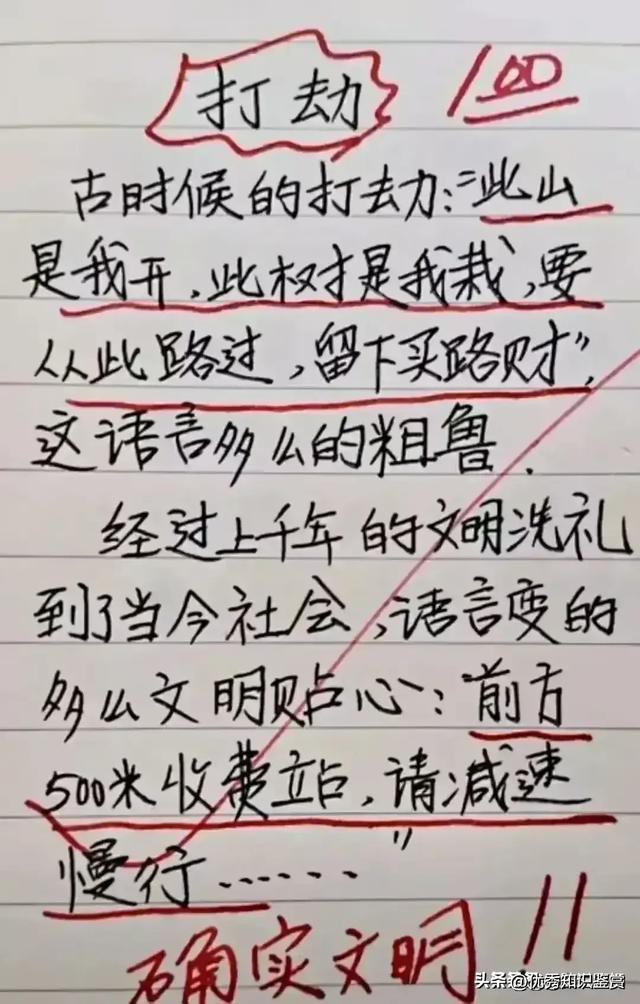 打劫
100
古时候的打去力："此山
是我开，此权才是我栽，要
从此路过，留下买路财"，
这语言多么的粗鲁．
经过上千年的文明洗礼
到了当今社会，语言变的
多么文明贴心：前方
500米收费站，请减速
慢行……"
确实文明!!
头条 @优秀知识鉴赏